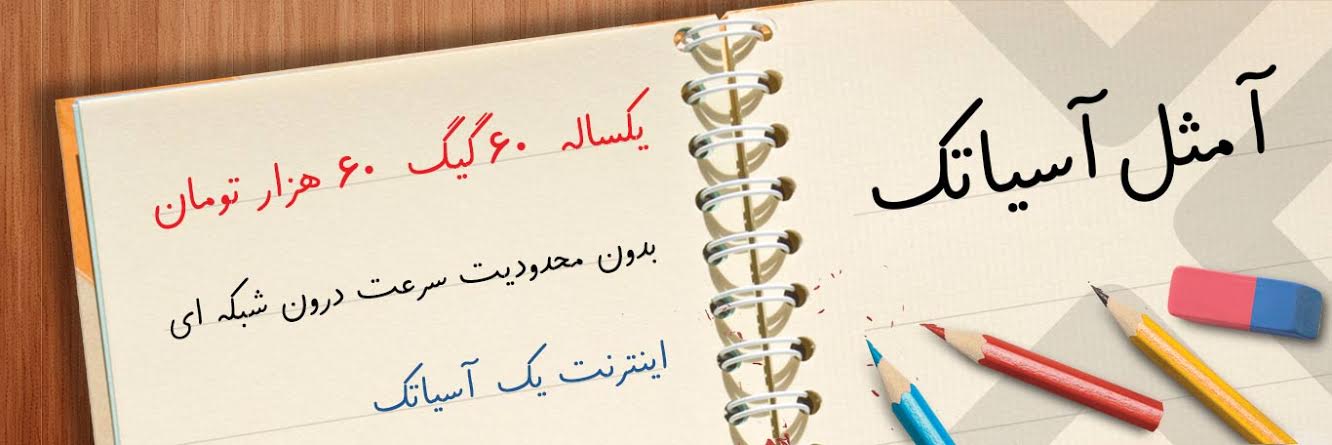 آ مثل آسیاتک
یکساله ۶۰ گیگ ۶۰ هزار تومان
بدون محدودیت سرعت درون شبکه ای
اینترنت یک آسیاتک